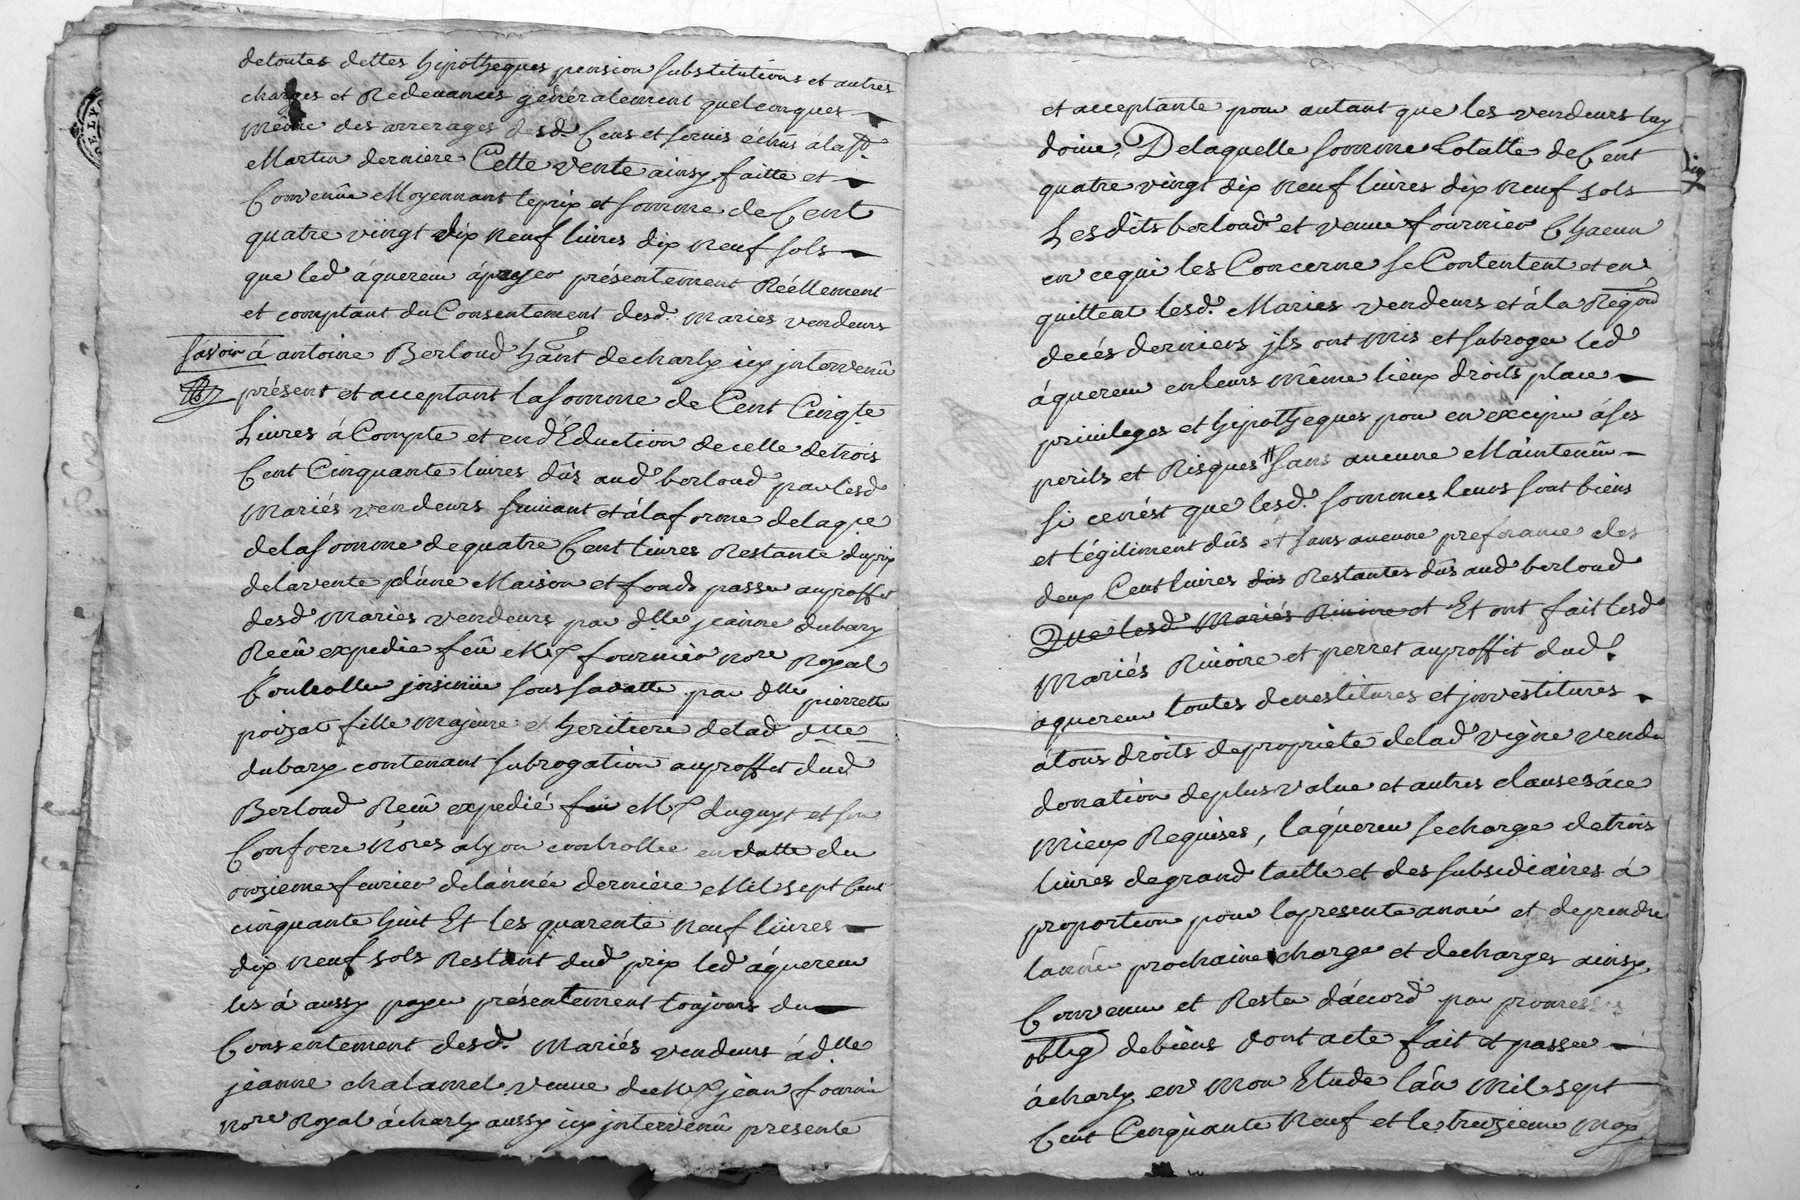 detoutes dettes hipotheques pension substitutions et autres
charges et Redevances généralement quelconques
même des arrerages desd. Cens et servis échus àla St
Martin derniere Cette vente ainsy faitte et
Convenüe Moyennant leprix et somme de Cent
quatre vingt dix neuf livres dix neuf sols
que led áquereur ápayer présentement Réellement
et comptant du Consentement desd. mariés vendeurs
savoir á antoine Berloud hant decharly icy jntervenû
présent et acceptant lasomme de Cent Cinqte
Livres á Compte et endEduction decelle detrois
Cent Cinquante livres dûs aud berloud par lesd
Mariés vendeurs suivant et álaforme delaqte
delasomme dequatre Cent livres Restante duprix
delavente d'une Maison et fonds passée auproffit
desd mariés vendeurs par dlle jeanne dubary
Reçû expedié feû Me fournier nore Royal
Controllé jnsinüé soussadatte par dlle pierrette
poizat fille majeure et heritiere delad dlle
dubary contenant subrogation auproffit dud
Berloud Reçû expedié Me duguyt et son
Confrere Nores alyon controllée endatte du
onzieme fevrier delánnée derniere Mil sept Cent
cinquante huit Et les quarente neuf livres
dix neuf sols Restant dud prix led áquereur
les á aussy payé présentement toujours du
Consentement desd. Mariés vendeurs ádlle
jeanne chalamel veuve deMe jean fournier
nore Royal ácharly aussy icy jntervenû presente
et acceptante pour autant que les vendeurs luy
doivé, Delaquelle somme totalle de Cent
quatre vingt dix neuf livres dix neuf sols
Lesdits berloud et veuve fournier Chacun
en cequi les Concerne se Contentent et en
quittent lesd. Mariés vendeurs et ála Reqon
decés derniers jls ont mis et subrogé led
áquereur enleurs même lieux droits place
privileges et hipotheques pour en exciper áses
perils et Risques sans aucune Maintenüe
si cenést que lesd. sommes leurs sont biens
et légitiment dûs et sans aucune preferance des
deux Cent livres Restantes dûs aud berloud
Que lesd Mariés Rivoire et Et ont fait lesd
Mariés Rivoire et perret auproffit dud.
aquereur toutes devestitures et jnvestitures
átous droits depropriété delad vigne vendu
donation deplus value et autres clauses áce
Mieux Requises, láquereur secharge detrois
livres degrand taille et des subsidiaires á
proportion pour lapresente année et deprendre
lánnée prochaine charge et décharges ainsy
Convenu et Resté dáccord par promesses
oblig debiens dont acte fait et passée
ácharly en mon Etude lán Mil sept
Cent Cinquante Neuf et le treizieme May